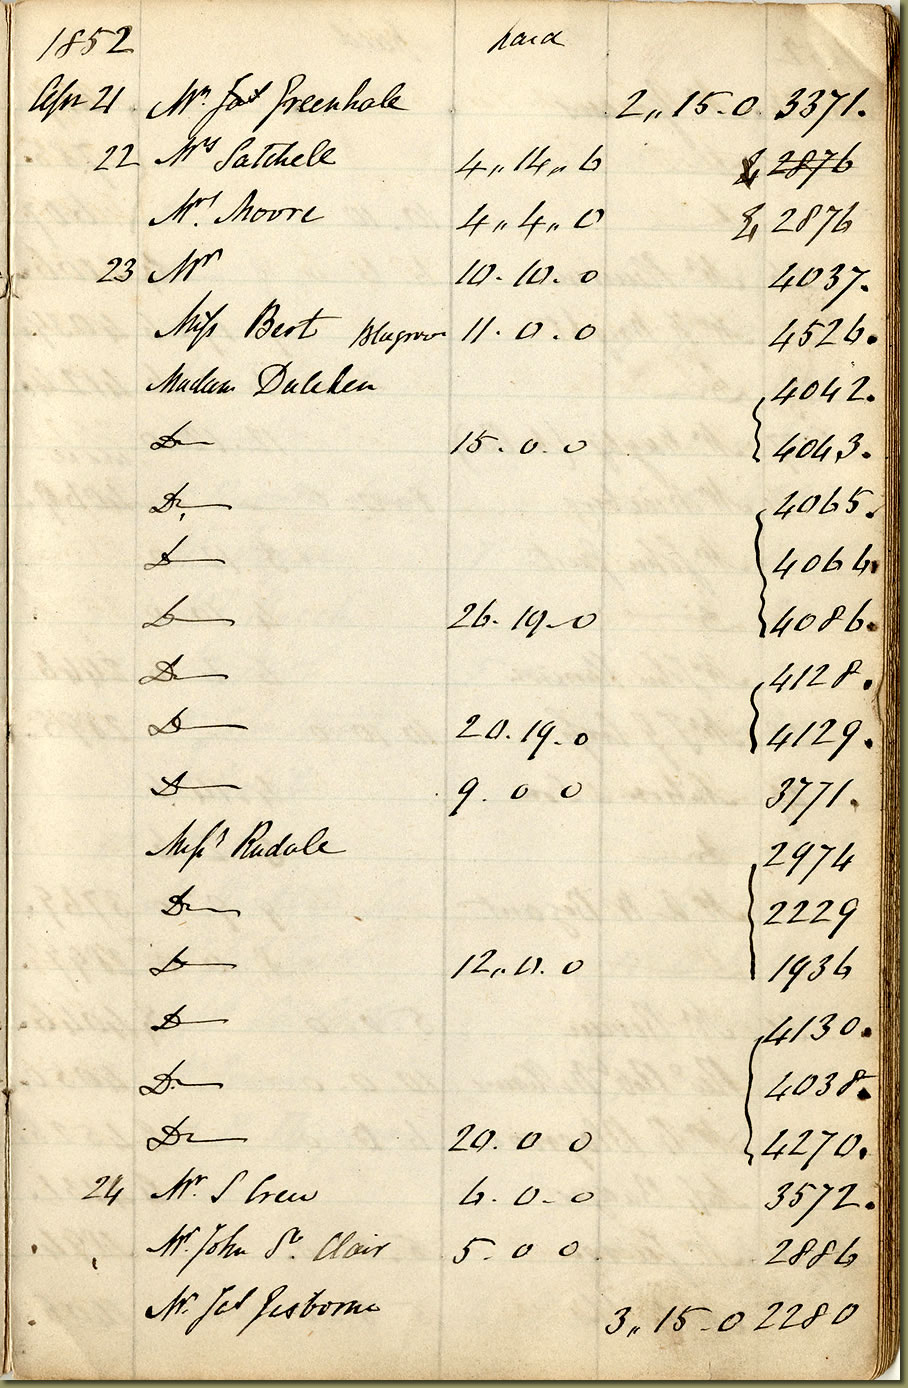 1852 paid
Apr 21 Mr. Jas Greenhale 2,, 15 - 0 3371.
22 Mrs Satchell 4,, 14,, 6 & 2876
Mrs. Moore 4,, 4,, 0 & 2876
23 Mr 10. 10. 0 4037.
Miss Bert 11. 0. 0 4526.
Madam Dulcken 4042.
Do 15. 0. 0 4043.
Do 4065.
Do 4066.
Do 26. 19 - 0 4086.
Do 4128.
Do 20. 19. 0 4129.
Do 9. 0 0 3771.
Messrs Rudall 2974
Do 2229
Do 12,, 0. 0 1936
Do 4130.
Do 4038.
Do 20. 0 0 4270.
24 Mr. S Crew 6. 0 - 0 3572.
Mr. John St. Clair 5. 0 0 2886
Mr. Jas Gisborne 3,, 15 - 0 2280